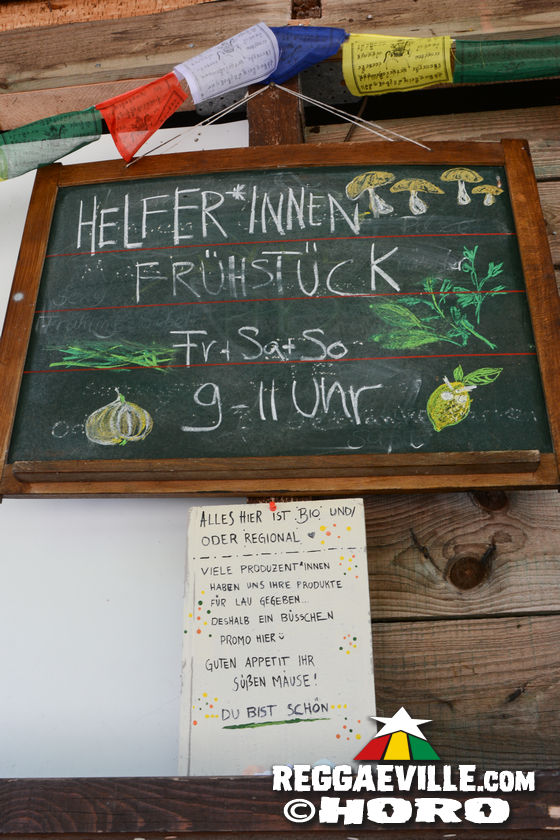 HELFER*INNEN
FRÜHSTÜCK
Fr + Sa + So
9-11 Uhr
ALLES HIER IST BIO UND/
ODER REGIONAL
VIELE PRODUZENT*INNEN
HABEN UNS IHRE PRODUKTE
FÜR LAU GEGEBEN...
DESHALB EIN BÜSSCHEN
PROMO HIER
GUTEN APPETIT IHR
SÜßEN MÄUSE!
DU BIST SCHÖN
REGGAEVILLE.COM
©HORO